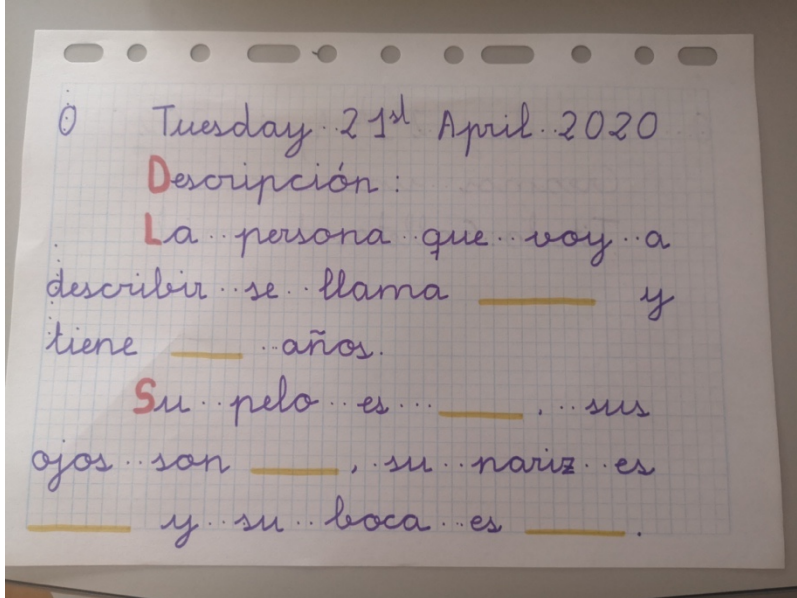 0 Tuesday 21st April 2020
Descripción:
La persona que voy a
describir se llama ______ y
tiene ____ años.
Su pelo es _____, sus
ojos son _____, su nariz es
______ y su boca es ______.